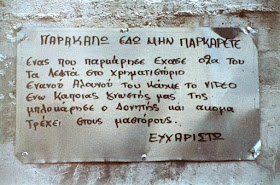 ΠΑΡΑΚΑΛΩ ΕΔΩ ΜΗΝ ΠΑΡΚΑΡΕΤΕ
Ένας που παρκάρησε έχασε όλα του
τα λεφτά στο χρηματιστήριο
Ενανού Αλανού του κάηκε το VIDEO
Ενώ κάποιας γνωστής μας της
μπλοκάρησε ο δονητής και ακόμα
τρέχει στους μαστόρους.
ΕΥΧΑΡΙΣΤΩ